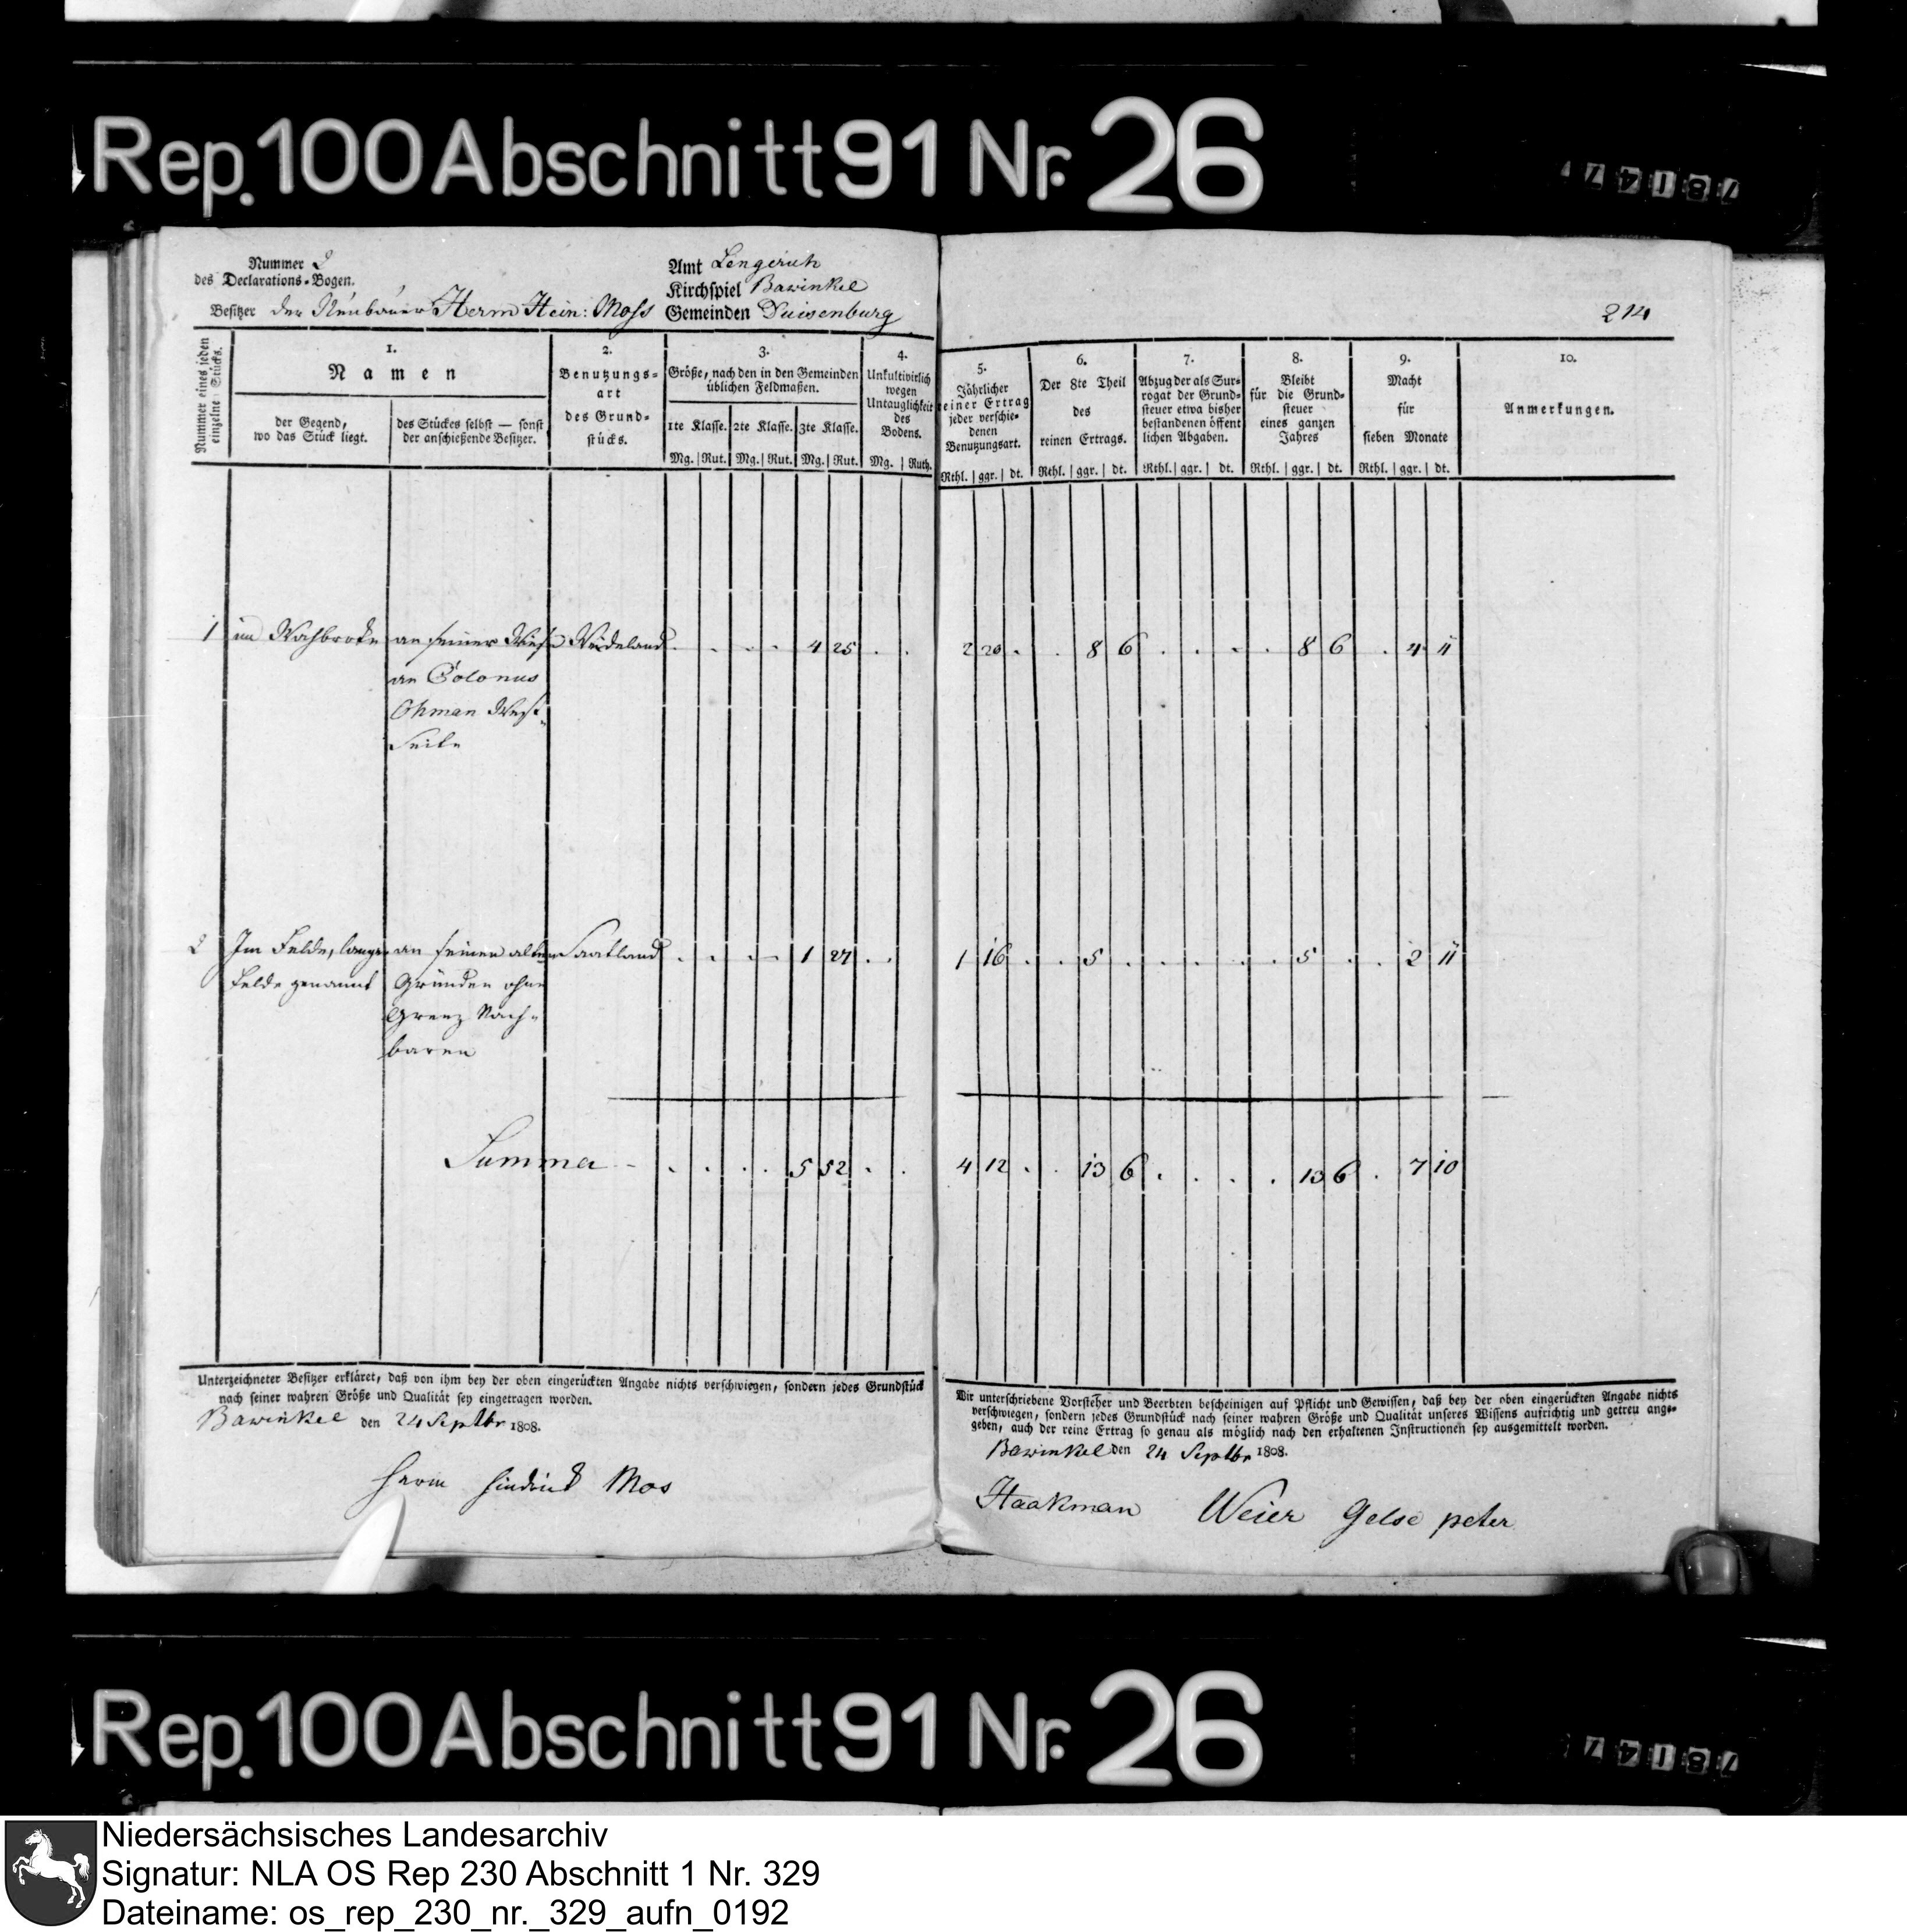 Rep. 100 Abschnitt 91 Nr. 26
Nummer 2
des Declarations-Bogen.
Besitzer der Neubauer Herm Hein: Moss
Amt Lengerich
Kirchspiel Bawinkel
Gemeinden Duisenburg
214
Nummer eines jeden einzelne Stücks.
1.
Namen
der Gegend,
wo das Stück liegt.
des Stückes selbst — sonst
der anschießende Besitzer.
2.
Benutzungs-
art
des Grund-
stücks.
3.
Größe, nach den in den Gemeinden
üblichen Feldmaßen.
1te Klasse. 2te Klasse. 3te Klasse.
Mg. Rut. Mg. Rut. Mg. Rut.
4.
Unkultivirlich
wegen
Untauglichkeit
des
Bodens.
Mg. Ruth.
5.
Jährlicher
reiner Ertrag
jeder verschie-
denen
Benutzungsart.
Rthl. ggr. dt.
6.
Der 8te Theil
des
reinen Ertrags.
Rthl. ggr. dt.
7.
Abzug der als Sur-
rogat der Grund-
steuer etwa bisher
bestandenen öffent
lichen Abgaben.
Rthl. ggr. dt.
8.
Bleibt
für die Grund-
steuer
eines ganzen
Jahres
Rthl. ggr. dt.
9.
Macht
für
sieben Monate
Rthl. ggr. dt.
10.
Anmerkungen.
1 im an seiner Wiese Weideland . . . . 4 25 . . 2 20 . . 8 6 . . . . 8 6 . 4 11
an Colonus
Ohman West-
Seite
2 Im Felde, lange an seinen alten Saatland . . . . 1 27 . . 1 16 . . 5 . . . . . 5 . . 2 11
Felde genannt Gründen ohne
Grenz Nach-
baren
Summa - . . . . 5 52 . . 4 12 . . 13 6 . . . . 13 6 . 7 10
Unterzeichneter Besitzer erkläret, daß von ihm bey der oben eingerückten Angabe nichts verschwiegen, sondern jedes Grundstück
nach seiner wahren Größe und Qualität sey eingetragen worden.
Bawinkel den 24 Septbr 1808.
Herm Hindrick Mos
Wir unterschriebene Vorsteher und Beerbten bescheinigen auf Pflicht und Gewissen, daß bey der oben eingerückten Angabe nichts
verschwiegen, sondern jedes Grundstück nach seiner wahren Größe und Qualität unseres Wissens aufrichtig und getreu ange-
geben, auch der reine Ertrag so genau als möglich nach den erhaltenen Instructionen sey ausgemittelt worden.
Bawinkel den 24 Septbr 1808.
Haakman Weier Gelse peter
Rep. 100 Abschnitt 91 Nr. 26
Niedersächsisches Landesarchiv
Signatur: NLA OS Rep 230 Abschnitt 1 Nr. 329
Dateiname: os_rep_230_nr._329_aufn_0192